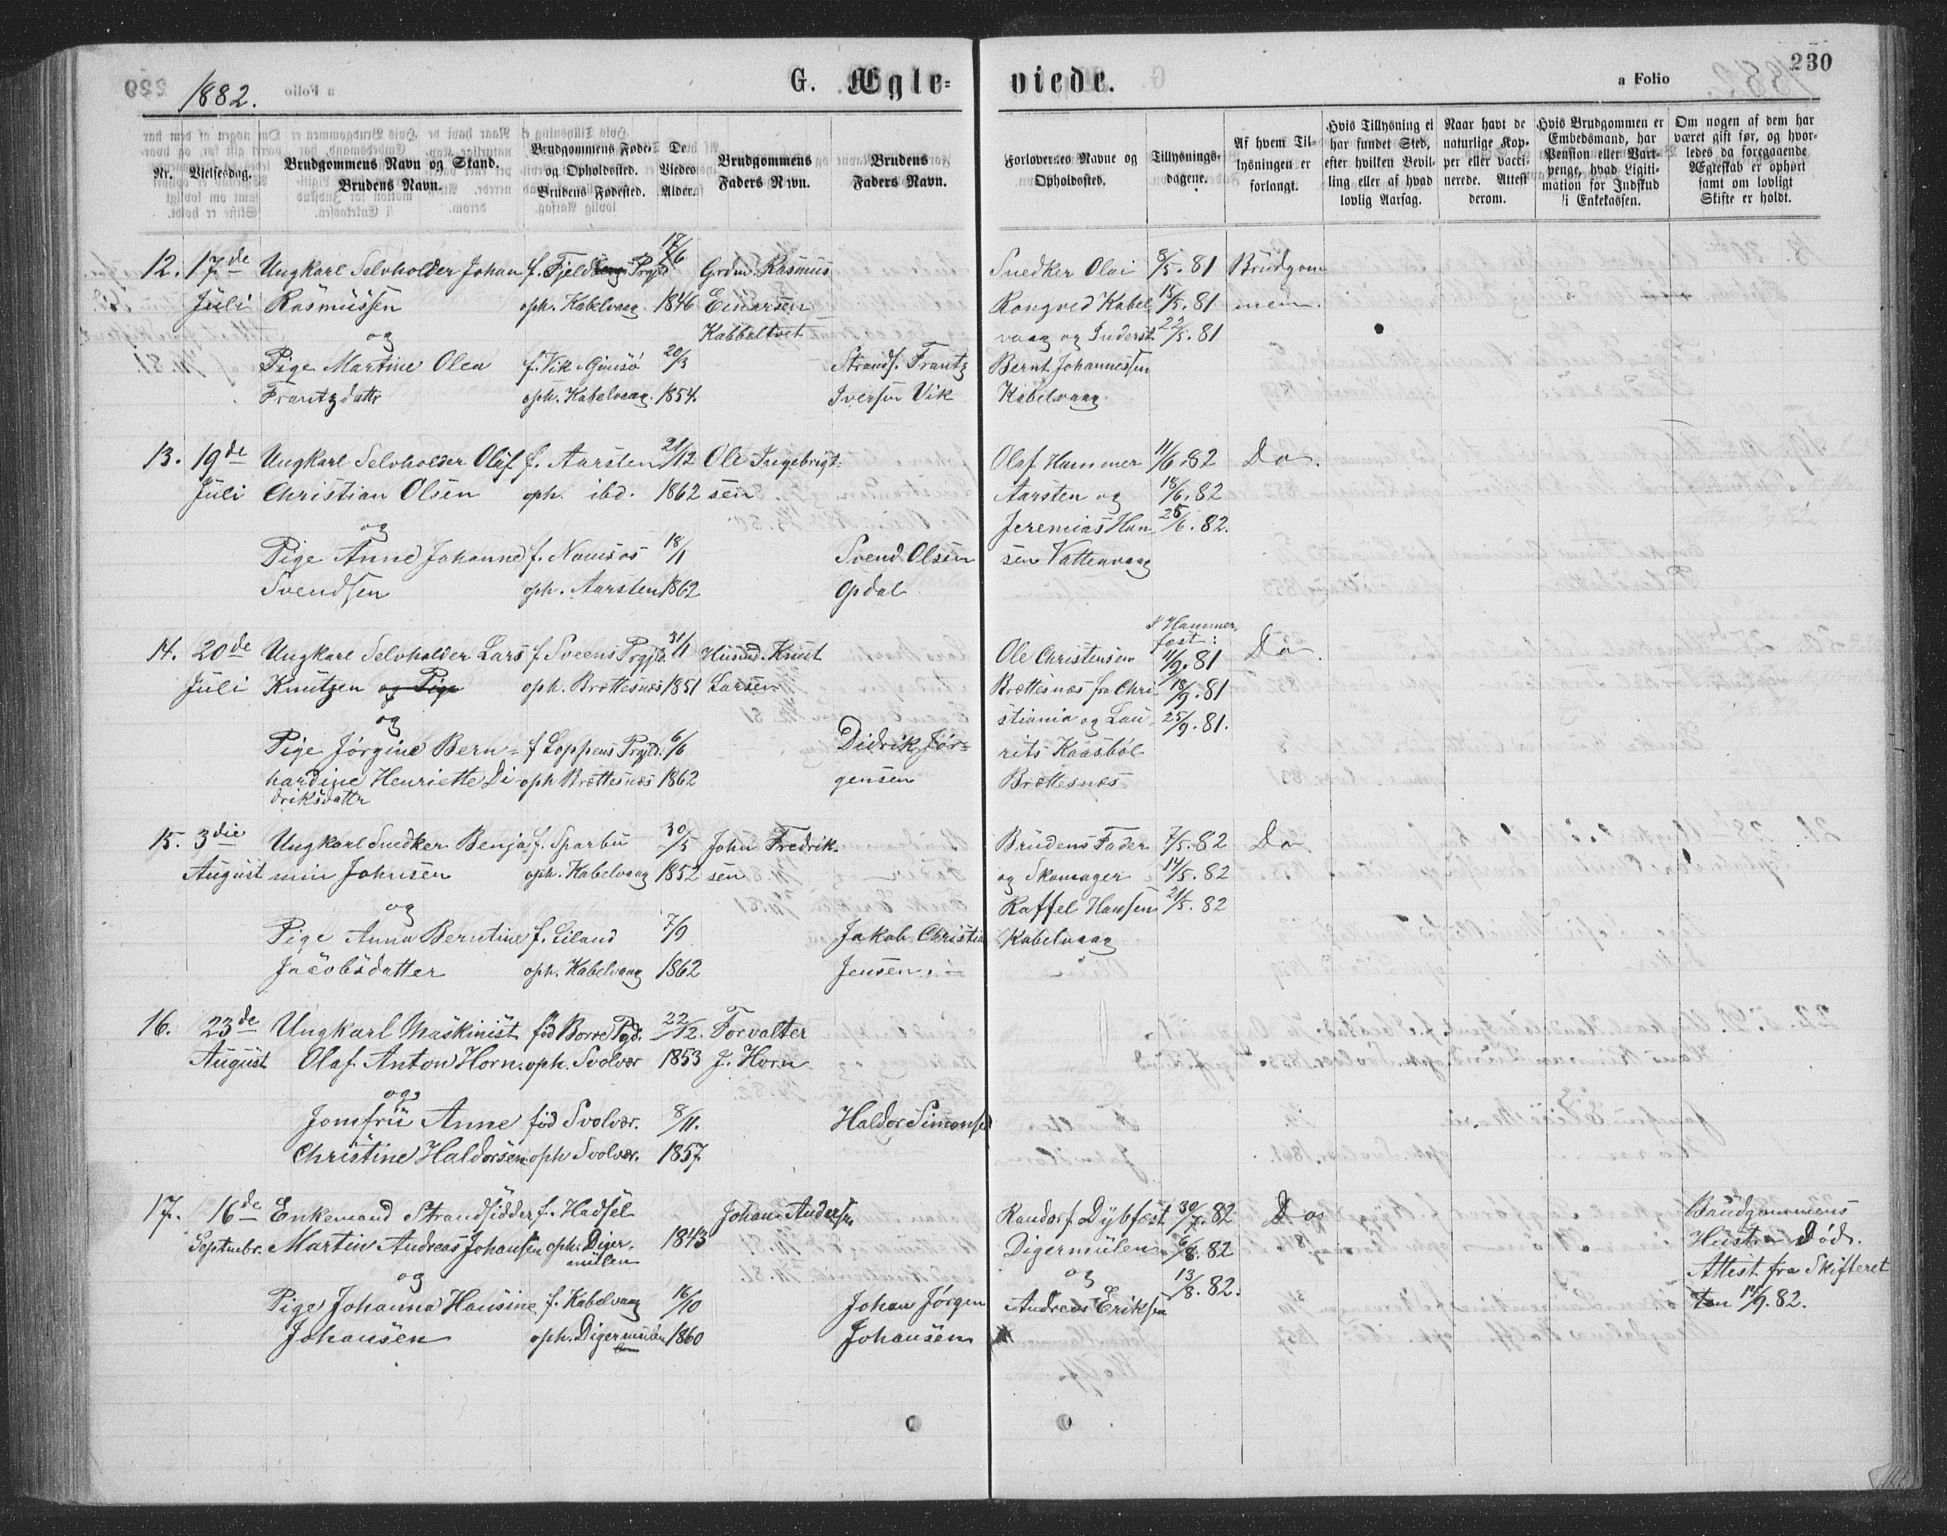 1882.
G. Ægte= viede.
a Folio 230
Nr.
Vielsesdag.
Brudgommens Navn og Stand.
Brudens Navn.
Brudgommens Føde- og Opholdssted.
Brudens Fødested.
De Viedes Alder.
Brudgommens Faders Navn.
Brudens Faders Navn.
Forlovernes Navne og Opholdssted.
Tillysningsdagene.
Af hvem Tillysningen er forlangt.
Hvis Tillysning ei har fundet Sted, efter hvilken Bevilling eller af hvad lovlig Aarsag.
Naar havt de naturlige Kopper eller vaccinerede. Attest derom.
Hvis Brudgommen er Embedsmand, har Pension eller Vartpenge, hvad Legitimation for Indskud i Enkekassen.
Om nogen af dem har været gift før, og hvorledes da foregaaende Ægteskab er ophørt samt om lovligt Skifte er holdt.
12. 17de Ungkarl Selvholder Johan f. Fjeldbergs Prgjld 17/6 Grdm. Rasmus Snedker Olai 8/5.81 Brudgom
Juli Rasmussen oph. Kabelvaag 1846 Einarsen Rongved Kabel 15/5.81 men.
og Kabbeltvet vaag og Inderst 22/5.81
Pige Martine Olea f. Vik Gimsø 20/3 Strands. Frantz Bernt Johannessen
Frantzdattr oph. Kabelvaag. 1854. Iversen Vik Kabelvaag
13. 19de Ungkarl Selvholder Olaf f. Aarsten 21/12 Ole Ingebrigt- Olaf Hammer 11/6.82 Do.
Juli Christian Olsen oph. ibd. 1862 sen Aarsten og 18/6.82
og Jeremias Han 25/6.82.
Pige Anne Johanne f. Namsos 18/1 Svend Olsen sen Vattenvaag
Svendsen oph. Aarsten 1862 Opdal
14. 20de Ungkarl Selvholder Lars f. Sveens Prgjld. 31/1 Husmd. Knut Ole Christensen i Hammer, fest: 11/9.81 Do.
Juli Knutzen og Pige oph. Brettesnæs 1851 Larsen Brettesnæs fra Chri 18/9.81
og stiania og Lau 25/9.81.
Pige Jørgine Bern= f. Loppens Prgjld. 6/6 Didrik Jør- rits Kaasbøl
hardine Henriette Di oph Brettesnæs 1862 gensen Brettesnæs
driksdattr
15. 3die Ungkarl Snedker Benja f. Sparbu 30/5 John Fredrik- Brudens Fader 7/5.82 Do
August min Johnsen oph. Kabelvaag 1852 sen og Skomager 14/5.82
og Raffel Hansen 21/5.82
Pige Anna Berntine f. Liland 7/9 Jakob Christia Kabelvaag
Jacobsdatter oph. Kabelvaag 1862 Jensen
16. 23de Ungkarl Maskinist fød Borre Pgd. 22/12. Forvalter
August Olaf Anton Horn. oph. Svolvær 1853 J. Horn
og
Jomfru Anne fød Svolvær. 8/11. Haldor Simonsen
Christine Haldorsen oph Svolvær. 1857
17. 16de Enkemand Strandsidder f. Hadsel Johan Andersen Randorf Dybfest 30/7.82 Do Brudgommens
Septmbr. Martin Andreas Johansen oph. Diger- 1843 Digermulen 6/8.82 Hustru Død.
mulen
og og 13/8.82. Attest fra Skifteret
Pige Johanna Hansine f. Kabelvaag 16/10 Johan Jørgen Andreas Eriksen ten 14/9.82.
Johansen oph. Digermulen 1860 Johansen